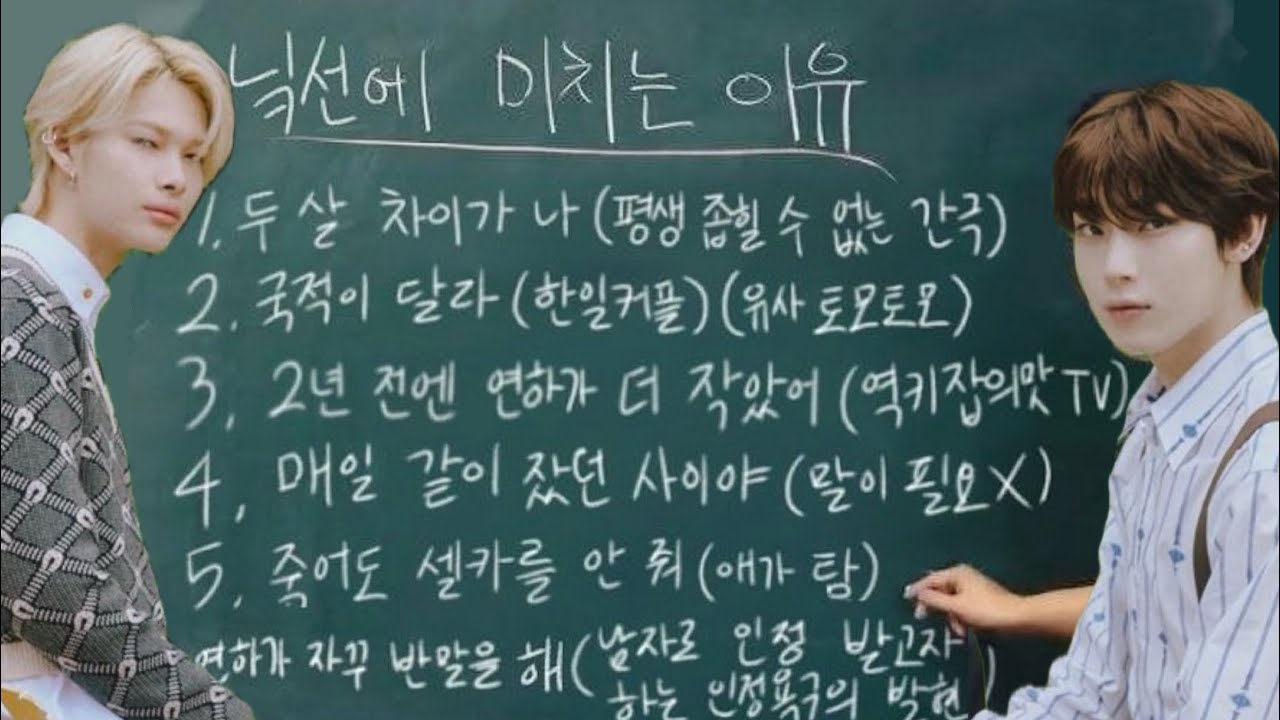 닉선에 미치는 이유
1. 두 살 차이가 나 (평생 좁힐 수 없는 간극)
2. 국적이 달라 (한일커플) (유사 토모토모)
3, 2년 전엔 연하가 더 작았어 (역키잡의맛 TV)
4, 매일 같이 잤던 사이야 (말이 필요 X)
5, 죽어도 셀카를 안 줘 (애가 탐)
연하가 자꾸 반말을 해 (남자로 인정 받고자
하는 인정욕구의 발현)